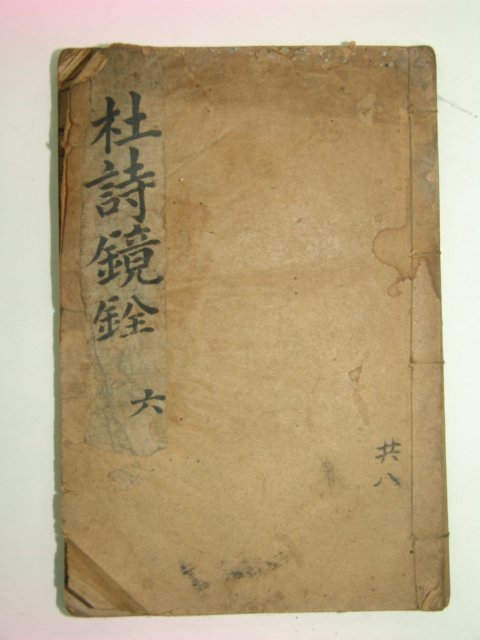 杜詩鏡銓
六
共八